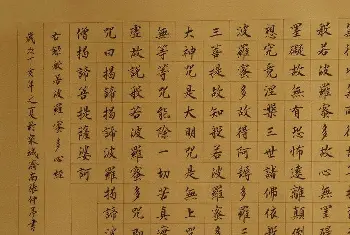 般若波羅蜜多故心無罣
罣礙故無有恐怖遠離顛
想究竟涅槃三世諸佛依般
波羅蜜多故得阿耨多羅
三菩提故知般若波羅蜜多
大神咒是大明咒是無上
無等等咒能除一切苦真
虛故說般若波羅蜜多咒即
咒曰揭諦揭諦波羅揭諦波
僧揭諦菩提薩婆訶
右錄般若波羅蜜多心經
年之夏於京城